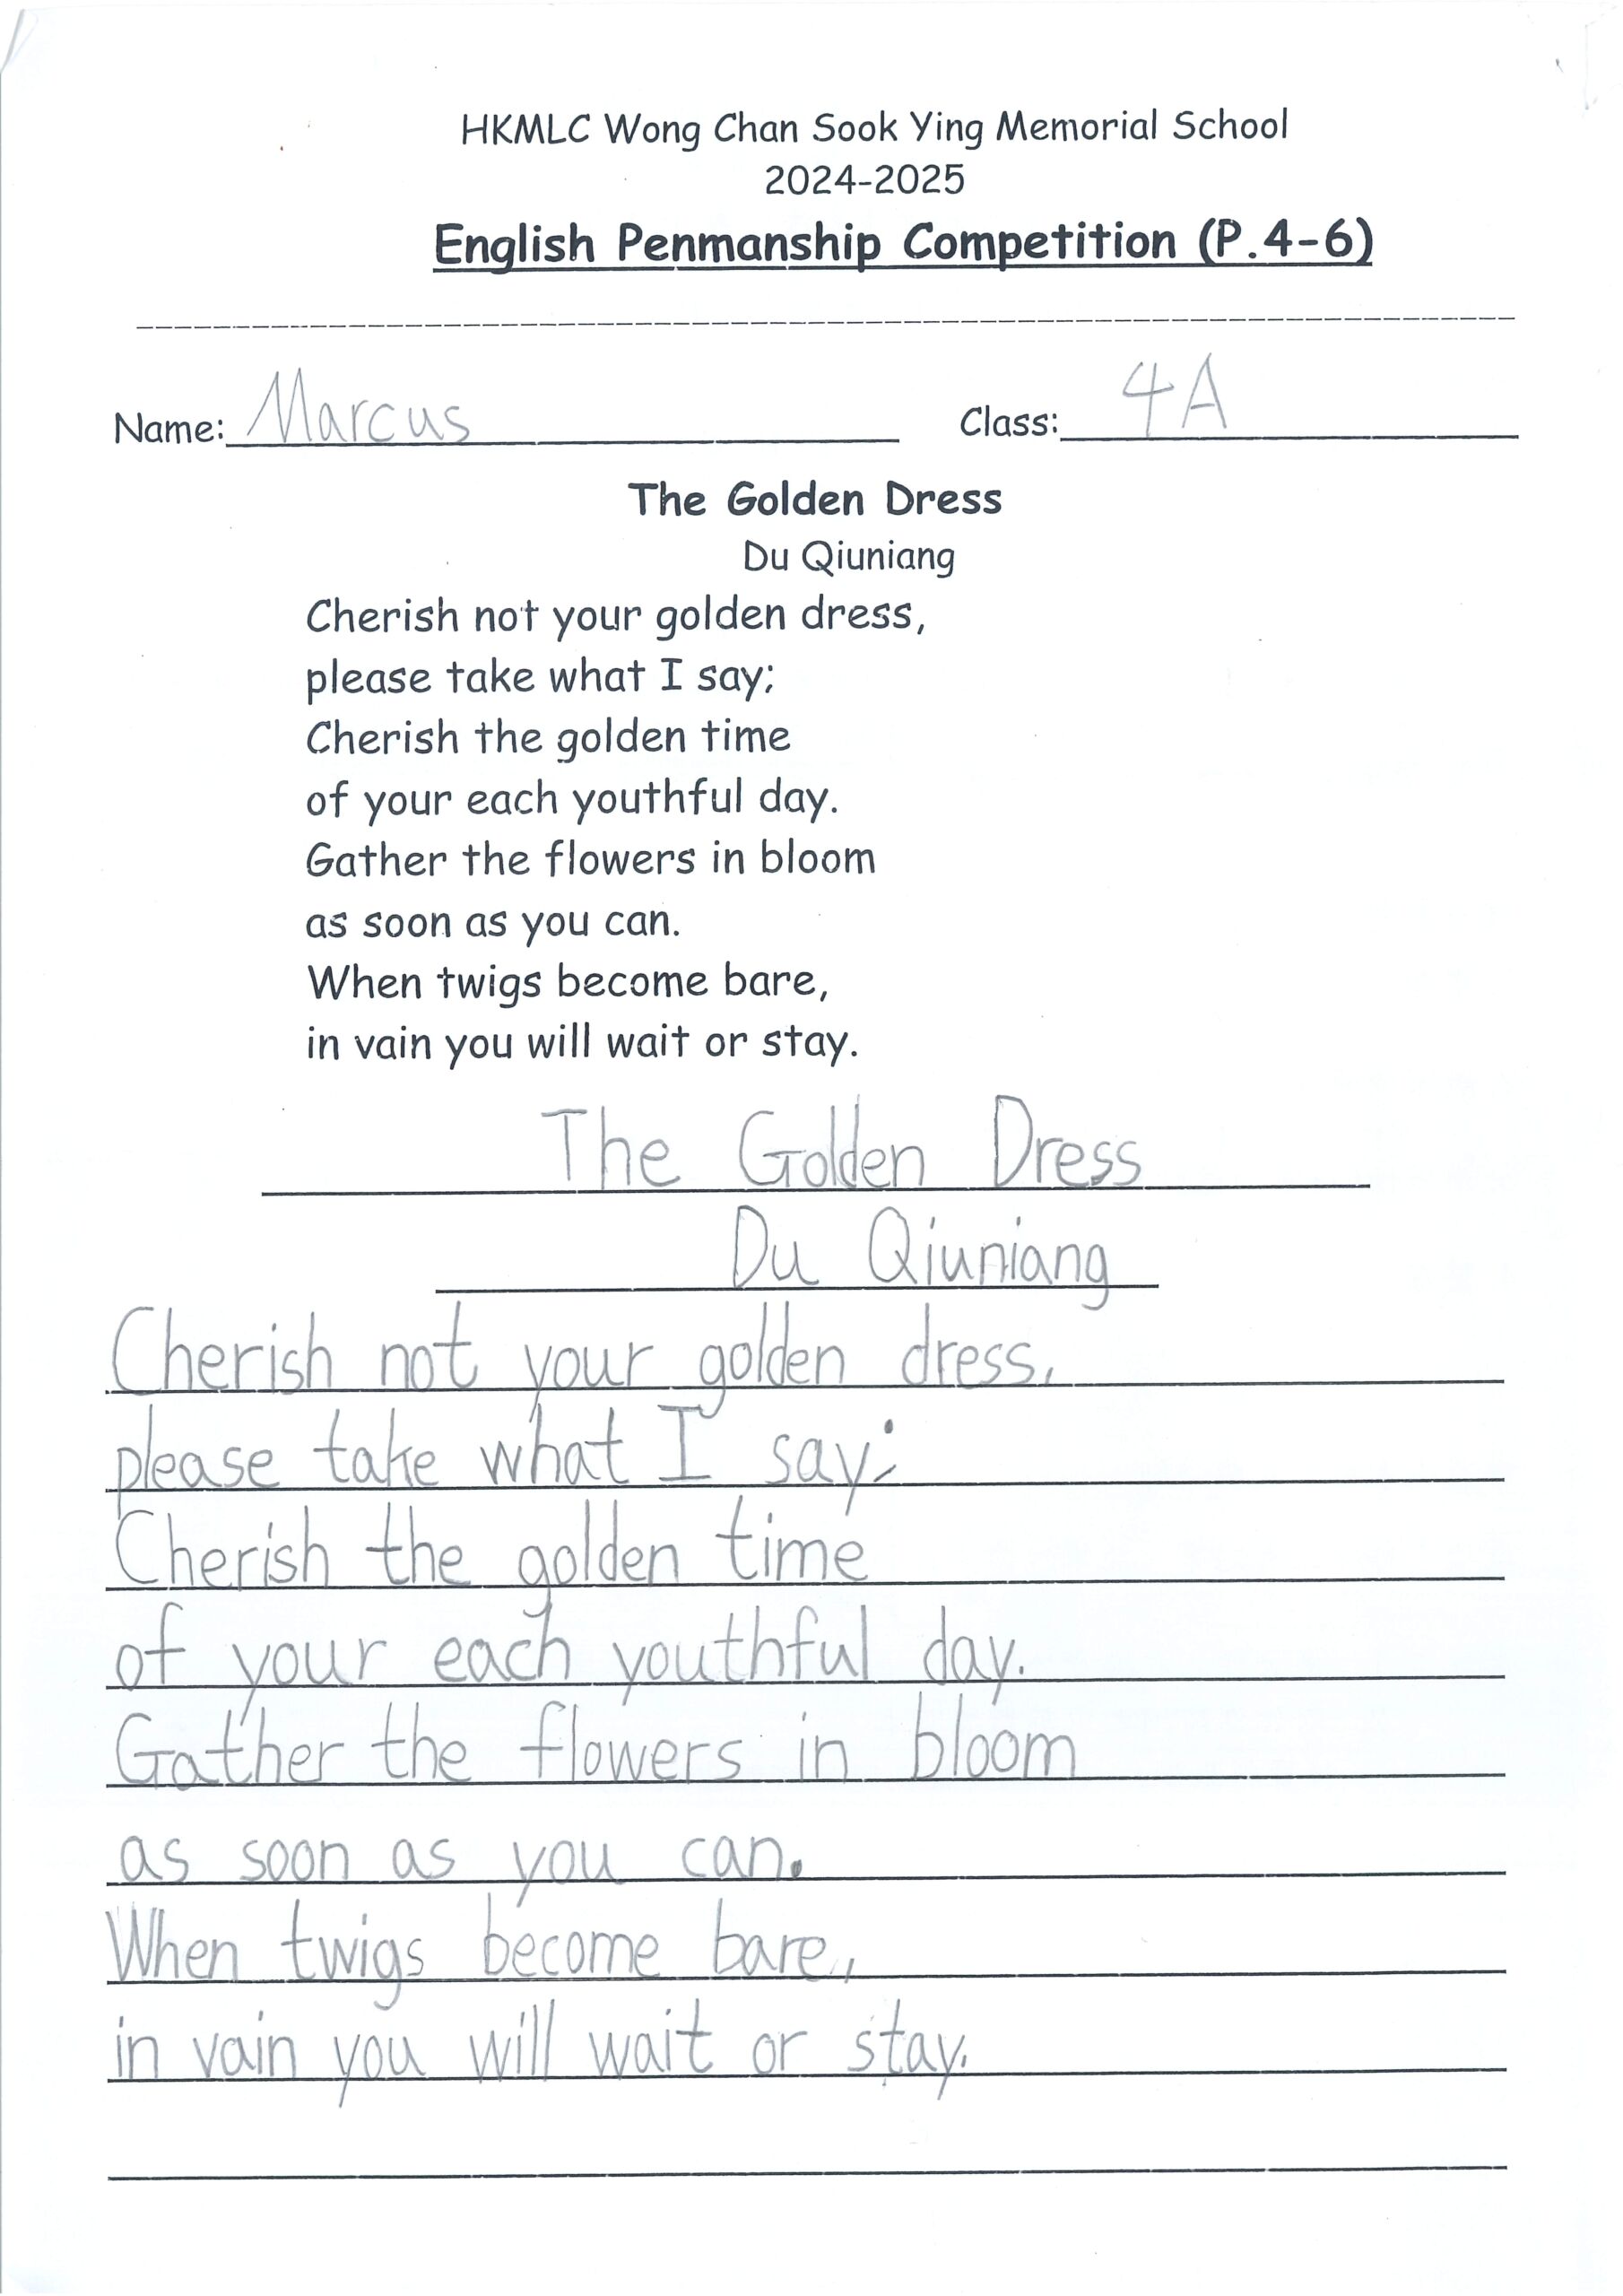 HKMLC Wong Chan Sook Ying Memorial School
2024-2025
English Penmanship Competition (P.4-6)
Name: Marcus Class: 4A
The Golden Dress
Du Qiuniang
Cherish not your golden dress,
please take what I say;
Cherish the golden time
of your each youthful day.
Gather the flowers in bloom
as soon as you can.
When twigs become bare,
in vain you will wait or stay.
The Golden Dress
Du Qiuniang
Cherish not your golden dress,
please take what I say;
Cherish the golden time
of your each youthful day.
Gather the flowers in bloom
as soon as you can.
When twigs become bare,
in vain you will wait or stay.